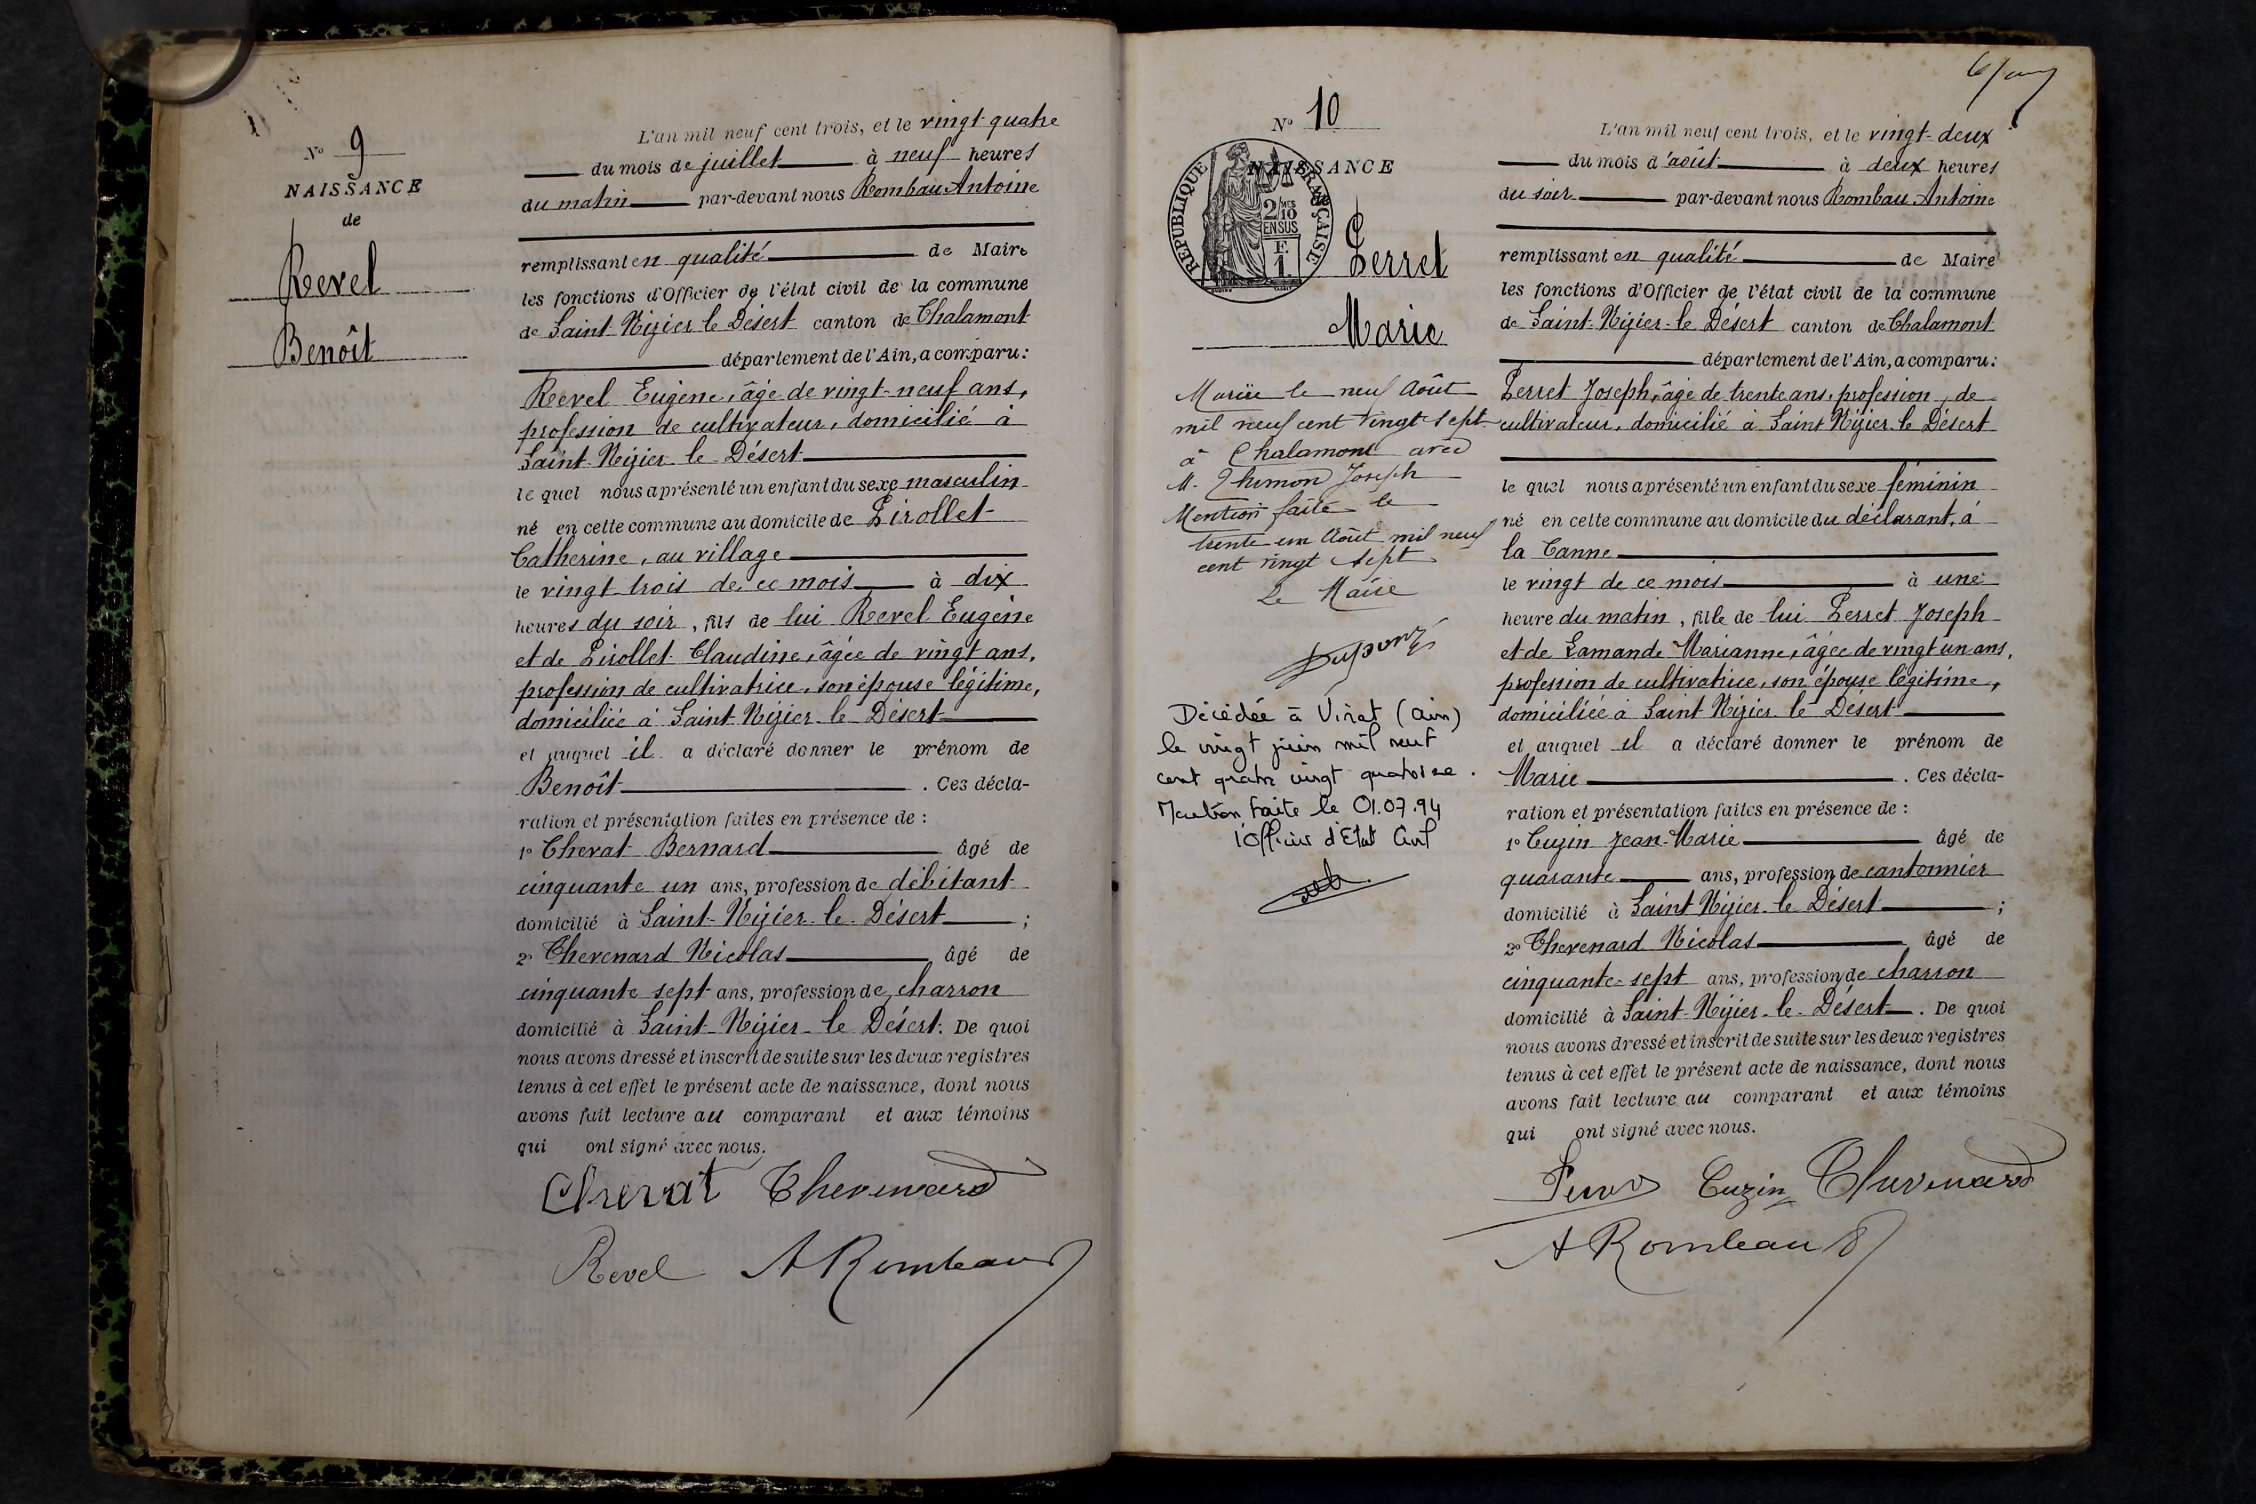 N° 9
NAISSANCE
de
Revel
Benoît
L'an mil neuf cent trois, et le vingt-quatre
du mois de juillet à neuf heures
du matin par-devant nous Rombau Antoine
remplissant en qualité de Maire
les fonctions d'Officier de l'état civil de la commune
de Saint-Nizier le Désert canton de Chalamont
département de l'Ain, a comparu :
Revel Eugène, âgé de vingt-neuf ans,
profession de cultivateur, domicilié à
Saint-Nizier le Désert
le quel nous a présenté un enfant du sexe masculin
né en cette commune au domicile de Pirollet
Catherine, au village
le vingt trois de ce mois à dix
heures du soir, fils de lui Revel Eugène
et de Pirollet Claudine, âgée de vingt ans,
profession de cultivatrice, son épouse légitime,
domiciliée à Saint Nizier le Désert
et auquel il a déclaré donner le prénom de
Benoît . Ces décla-
ration et présentation faites en présence de :
1° Cherat Bernard âgé de
cinquante un ans, profession de débitant
domicilié à Saint-Nizier-le-Désert ;
2° Thevenard Nicolas âgé de
cinquante sept ans, profession de charron
domicilié à Saint-Nizier-le Désert. De quoi
nous avons dressé et inscrit de suite sur les deux registres
tenus à cet effet le présent acte de naissance, dont nous
avons fait lecture au comparant et aux témoins
qui ont signé avec nous.
Cherat Thevenard
Revel A Rombeau
N° 10
NAISSANCE
RÉPUBLIQUE FRANÇAISE
2/10 MES
EN SUS
F.
1.
Perret
Marie
Mariée le neuf Août
mil neuf cent vingt sept
à Chalamont avec
M. Thimon Joseph
Mention faite le
trente un Août mil neuf
cent vingt sept
Le Maire
Décédée à Viriat (Ain)
le vingt juin mil neuf
cent quatre vingt quatorze.
Mention faite le 01.07.94
l'Officier d'Etat Civil
L'an mil neuf cent trois, et le vingt-deux
du mois d'août à deux heures
du soir par-devant nous Rombau Antoine
remplissant en qualité de Maire
les fonctions d'Officier de l'état civil de la commune
de Saint-Nizier-le Désert canton de Chalamont
département de l'Ain, a comparu :
Perret Joseph, âgé de trente ans, profession de
cultivateur, domicilié à Saint Nizier le Désert
le quel nous a présenté un enfant du sexe féminin
né en cette commune au domicile du déclarant, à
la Canne
le vingt de ce mois à une
heure du matin, fille de lui Perret Joseph
et de Lamande Marianne, âgée de vingt un ans,
profession de cultivatrice, son épouse légitime,
domiciliée à Saint Nizier le Désert
et auquel il a déclaré donner le prénom de
Marie . Ces décla-
ration et présentation faites en présence de :
1° Cuzin Jean-Marie âgé de
quarante ans, profession de cantonnier
domicilié à Saint Nizier-le Désert ;
2° Thevenard Nicolas âgé de
cinquante-sept ans, profession de charron
domicilié à Saint-Nizier-le-Désert . De quoi
nous avons dressé et inscrit de suite sur les deux registres
tenus à cet effet le présent acte de naissance, dont nous
avons fait lecture au comparant et aux témoins
qui ont signé avec nous.
Perret Cuzin Thevenard
A Rombeau